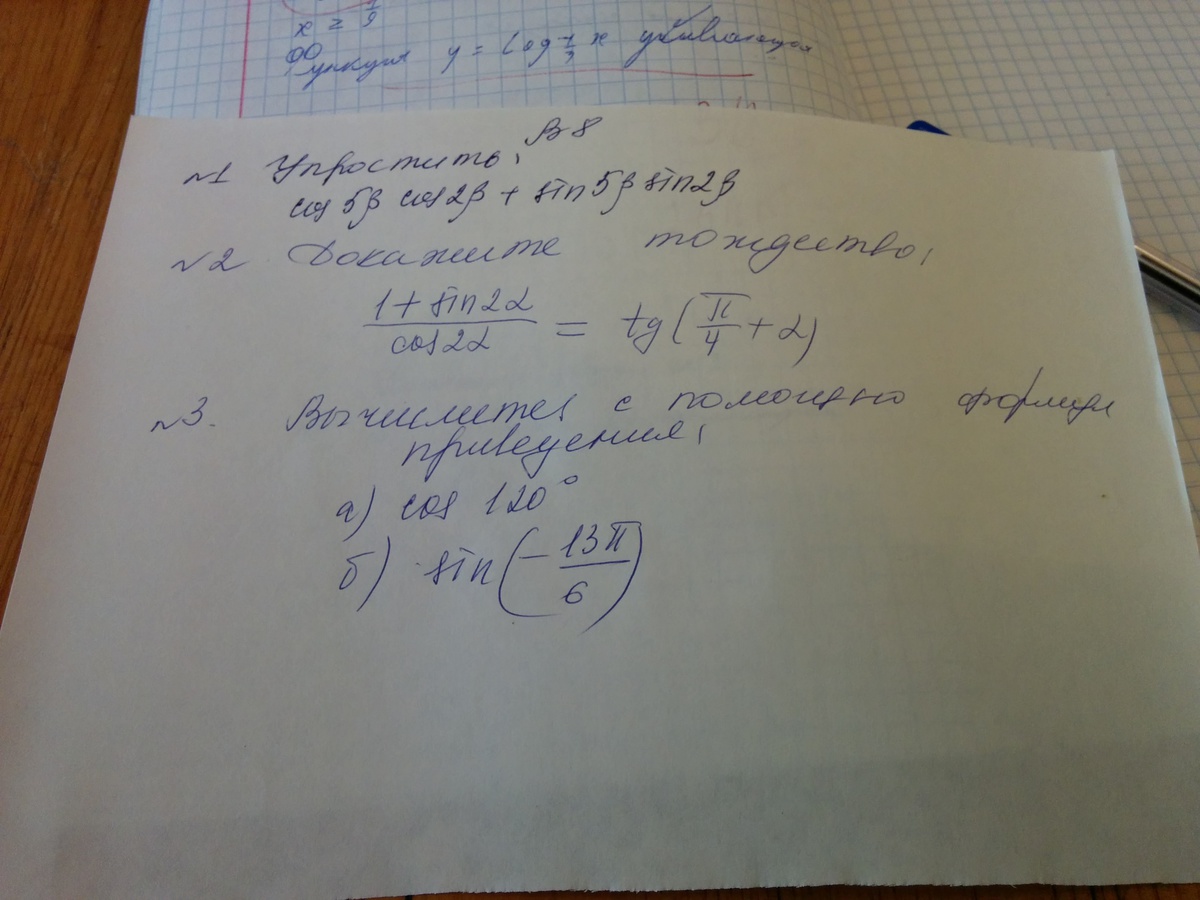 x ≥ 1/9
Функция y = log 1/9 x убывающая
В 8
№1 Упростить,
cos 5β cos 2β + sin 5β sin 2β
№2 Докажите тождество,
(1 + sin 2α)/(cos 2α) = tg(π/4 + α)
№3. Вычислите, с помощью формул
приведения,
а) cos 120°
б) sin(-13π/6)